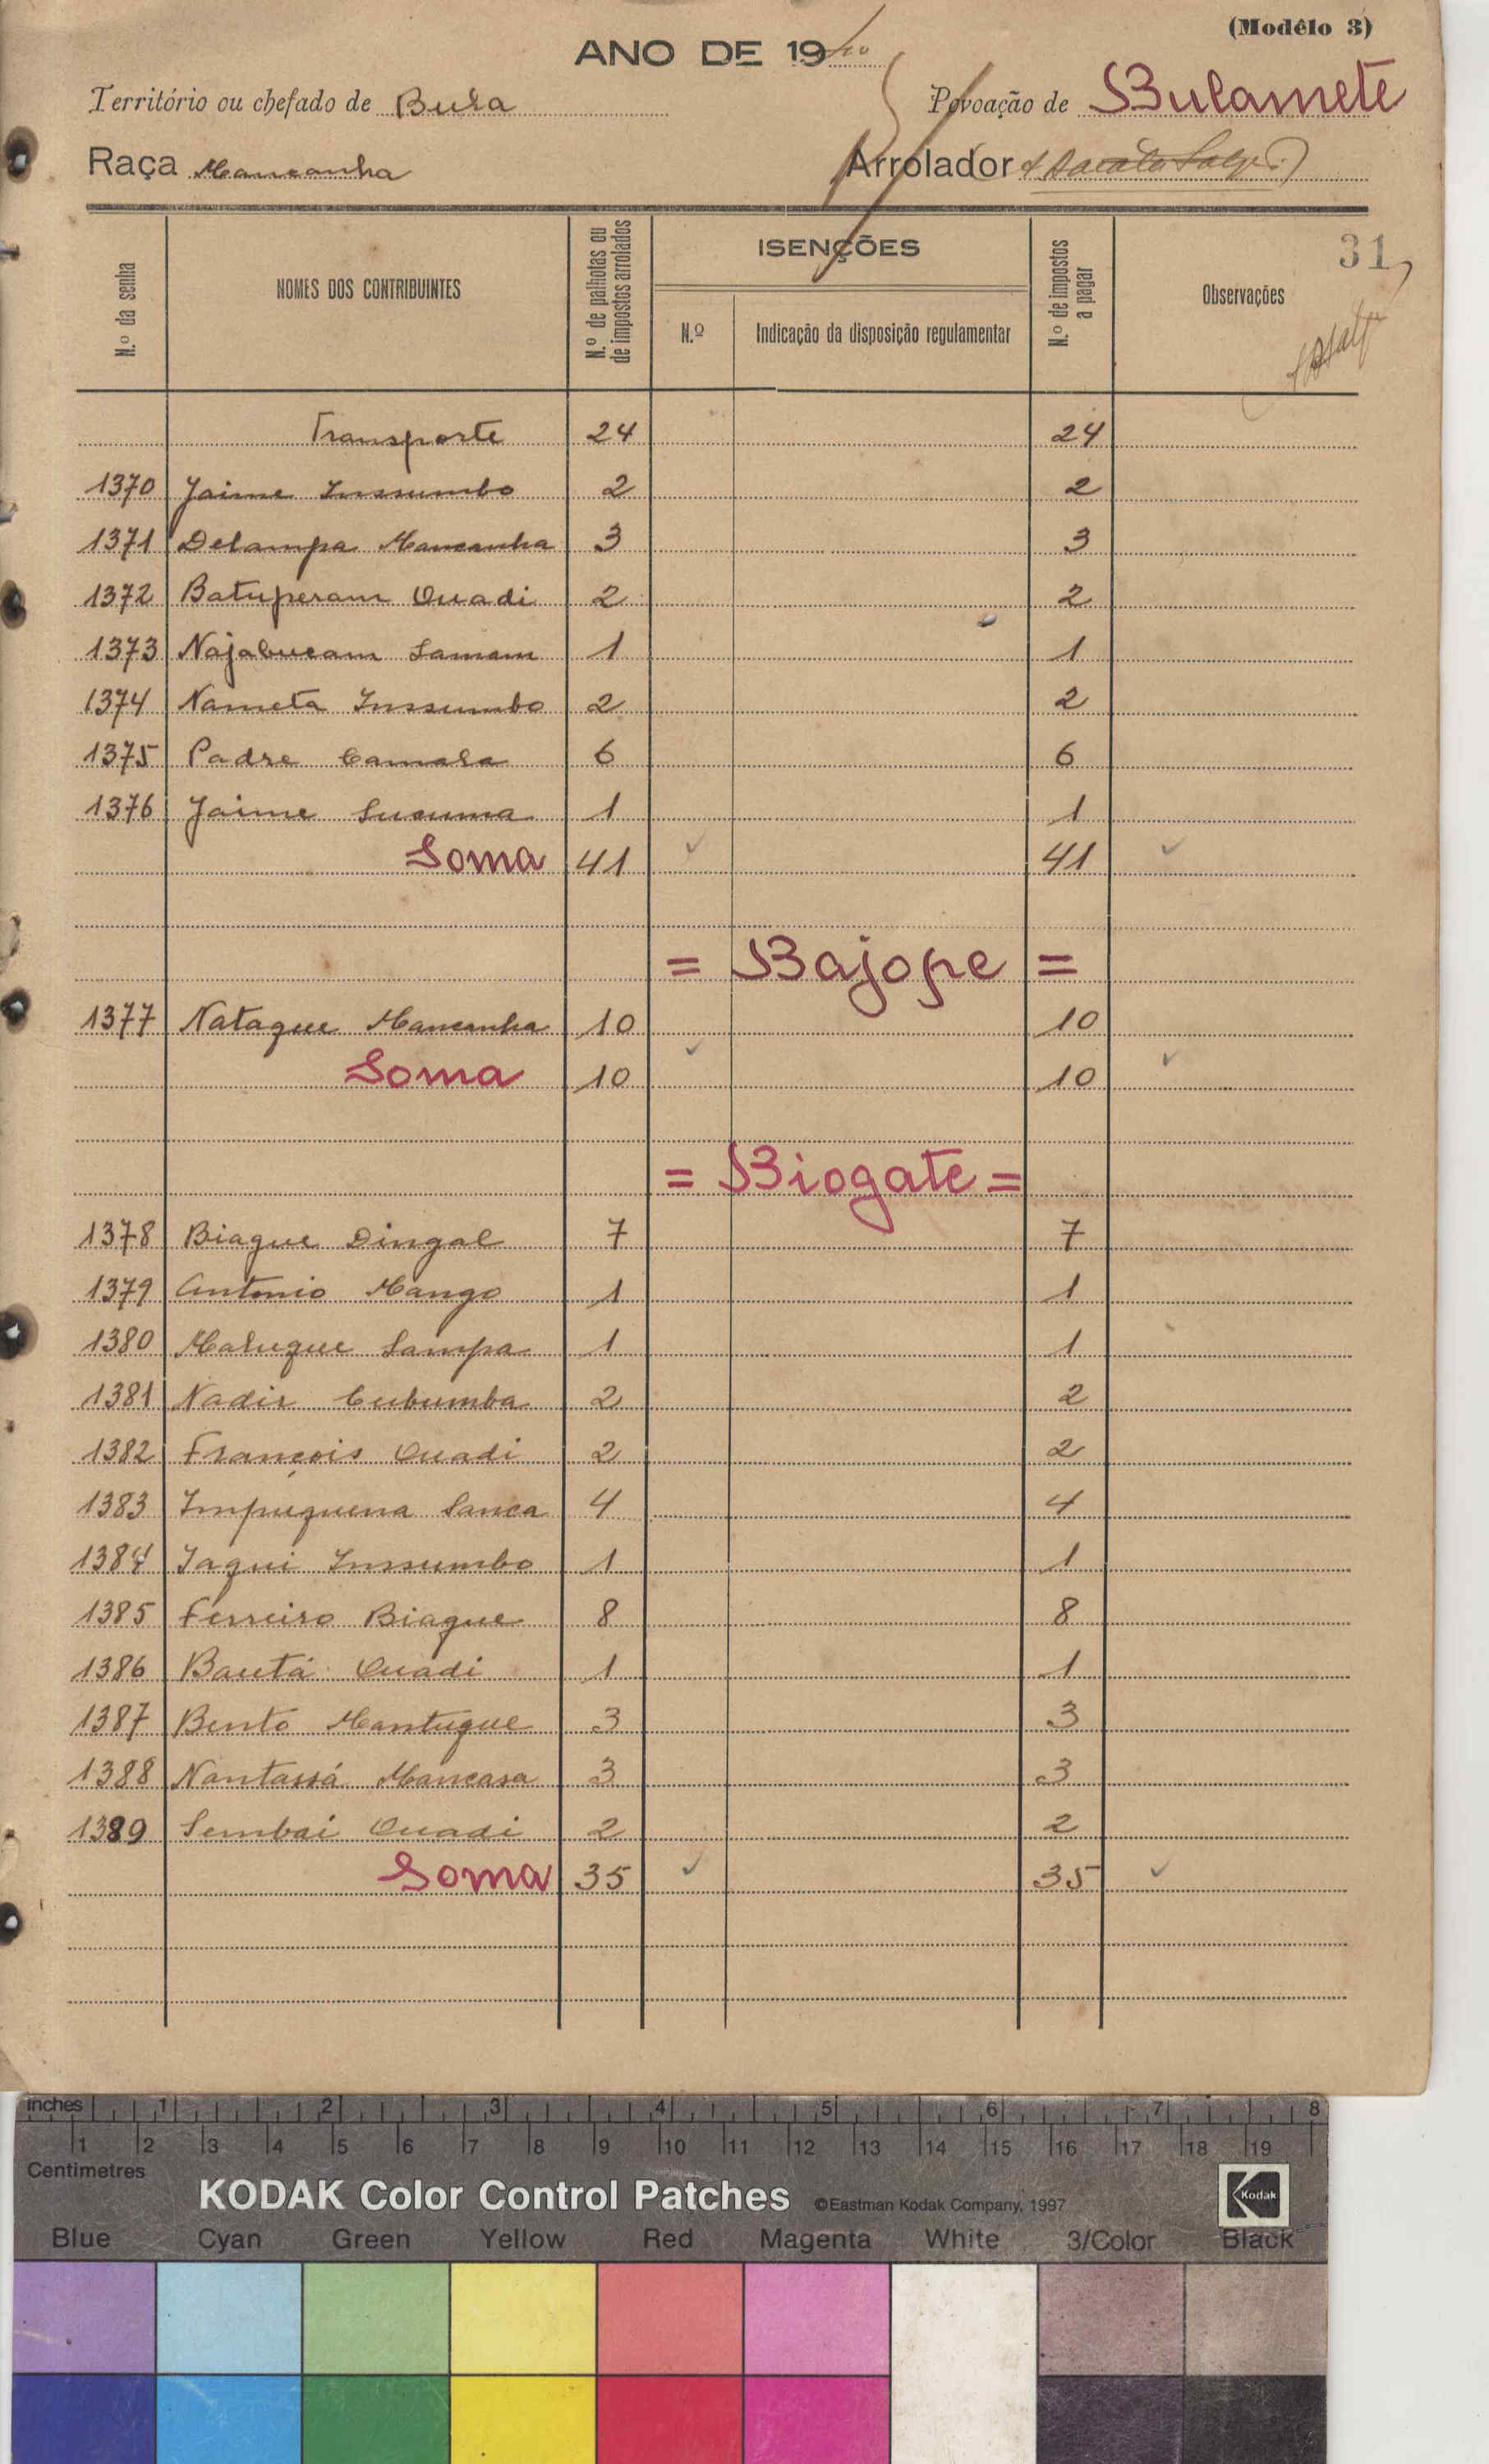 (Modêlo 3)
ANO DE 19
Território ou chefado de Bula Povoação de Bulamete
Raça Mancanha Arrolador
31
N.º da senha NOMES DOS CONTRIBUINTES N.º de palhotas ou de impostos arrolados ISENÇÕES N.º Indicação da disposição regulamentar N.º de impostos a pagar Observações
Transporte 24 24
1370 Jaime Inssumbo 2 2
1371 Delampa Mancanha 3 3
1372 Batuperam Quadi 2 2
1373 Najabucam Samam 1 1
1374 Nameta Inssumbo 2 2
1375 Padre Camala 6 6
1376 Jaime Sucuma 1 1
Soma 41 41
= Bajope =
1377 Nataque Mancanha 10 10
Soma 10 10
= Biogate =
1378 Biague Dingal 7 7
1379 Antonio Mango 1 1
1380 Maluque Sampa 1 1
1381 Nadir Cubumba 2 2
1382 François Quadi 2 2
1383 Impuquena Sanca 4 4
1384 Jaqui Inssumbo 1 1
1385 Ferreiro Biague 8 8
1386 Bautá Quadi 1 1
1387 Bentó Mantuque 3 3
1388 Nantassá Mancasa 3 3
1389 Sembai Quadi 2 2
Soma 35 35
inches 1 2 3 4 5 6 7 8
1 2 3 4 5 6 7 8 9 10 11 12 13 14 15 16 17 18 19
Centimetres
KODAK Color Control Patches ©Eastman Kodak Company, 1997 Kodak
Blue Cyan Green Yellow Red Magenta White 3/Color Black